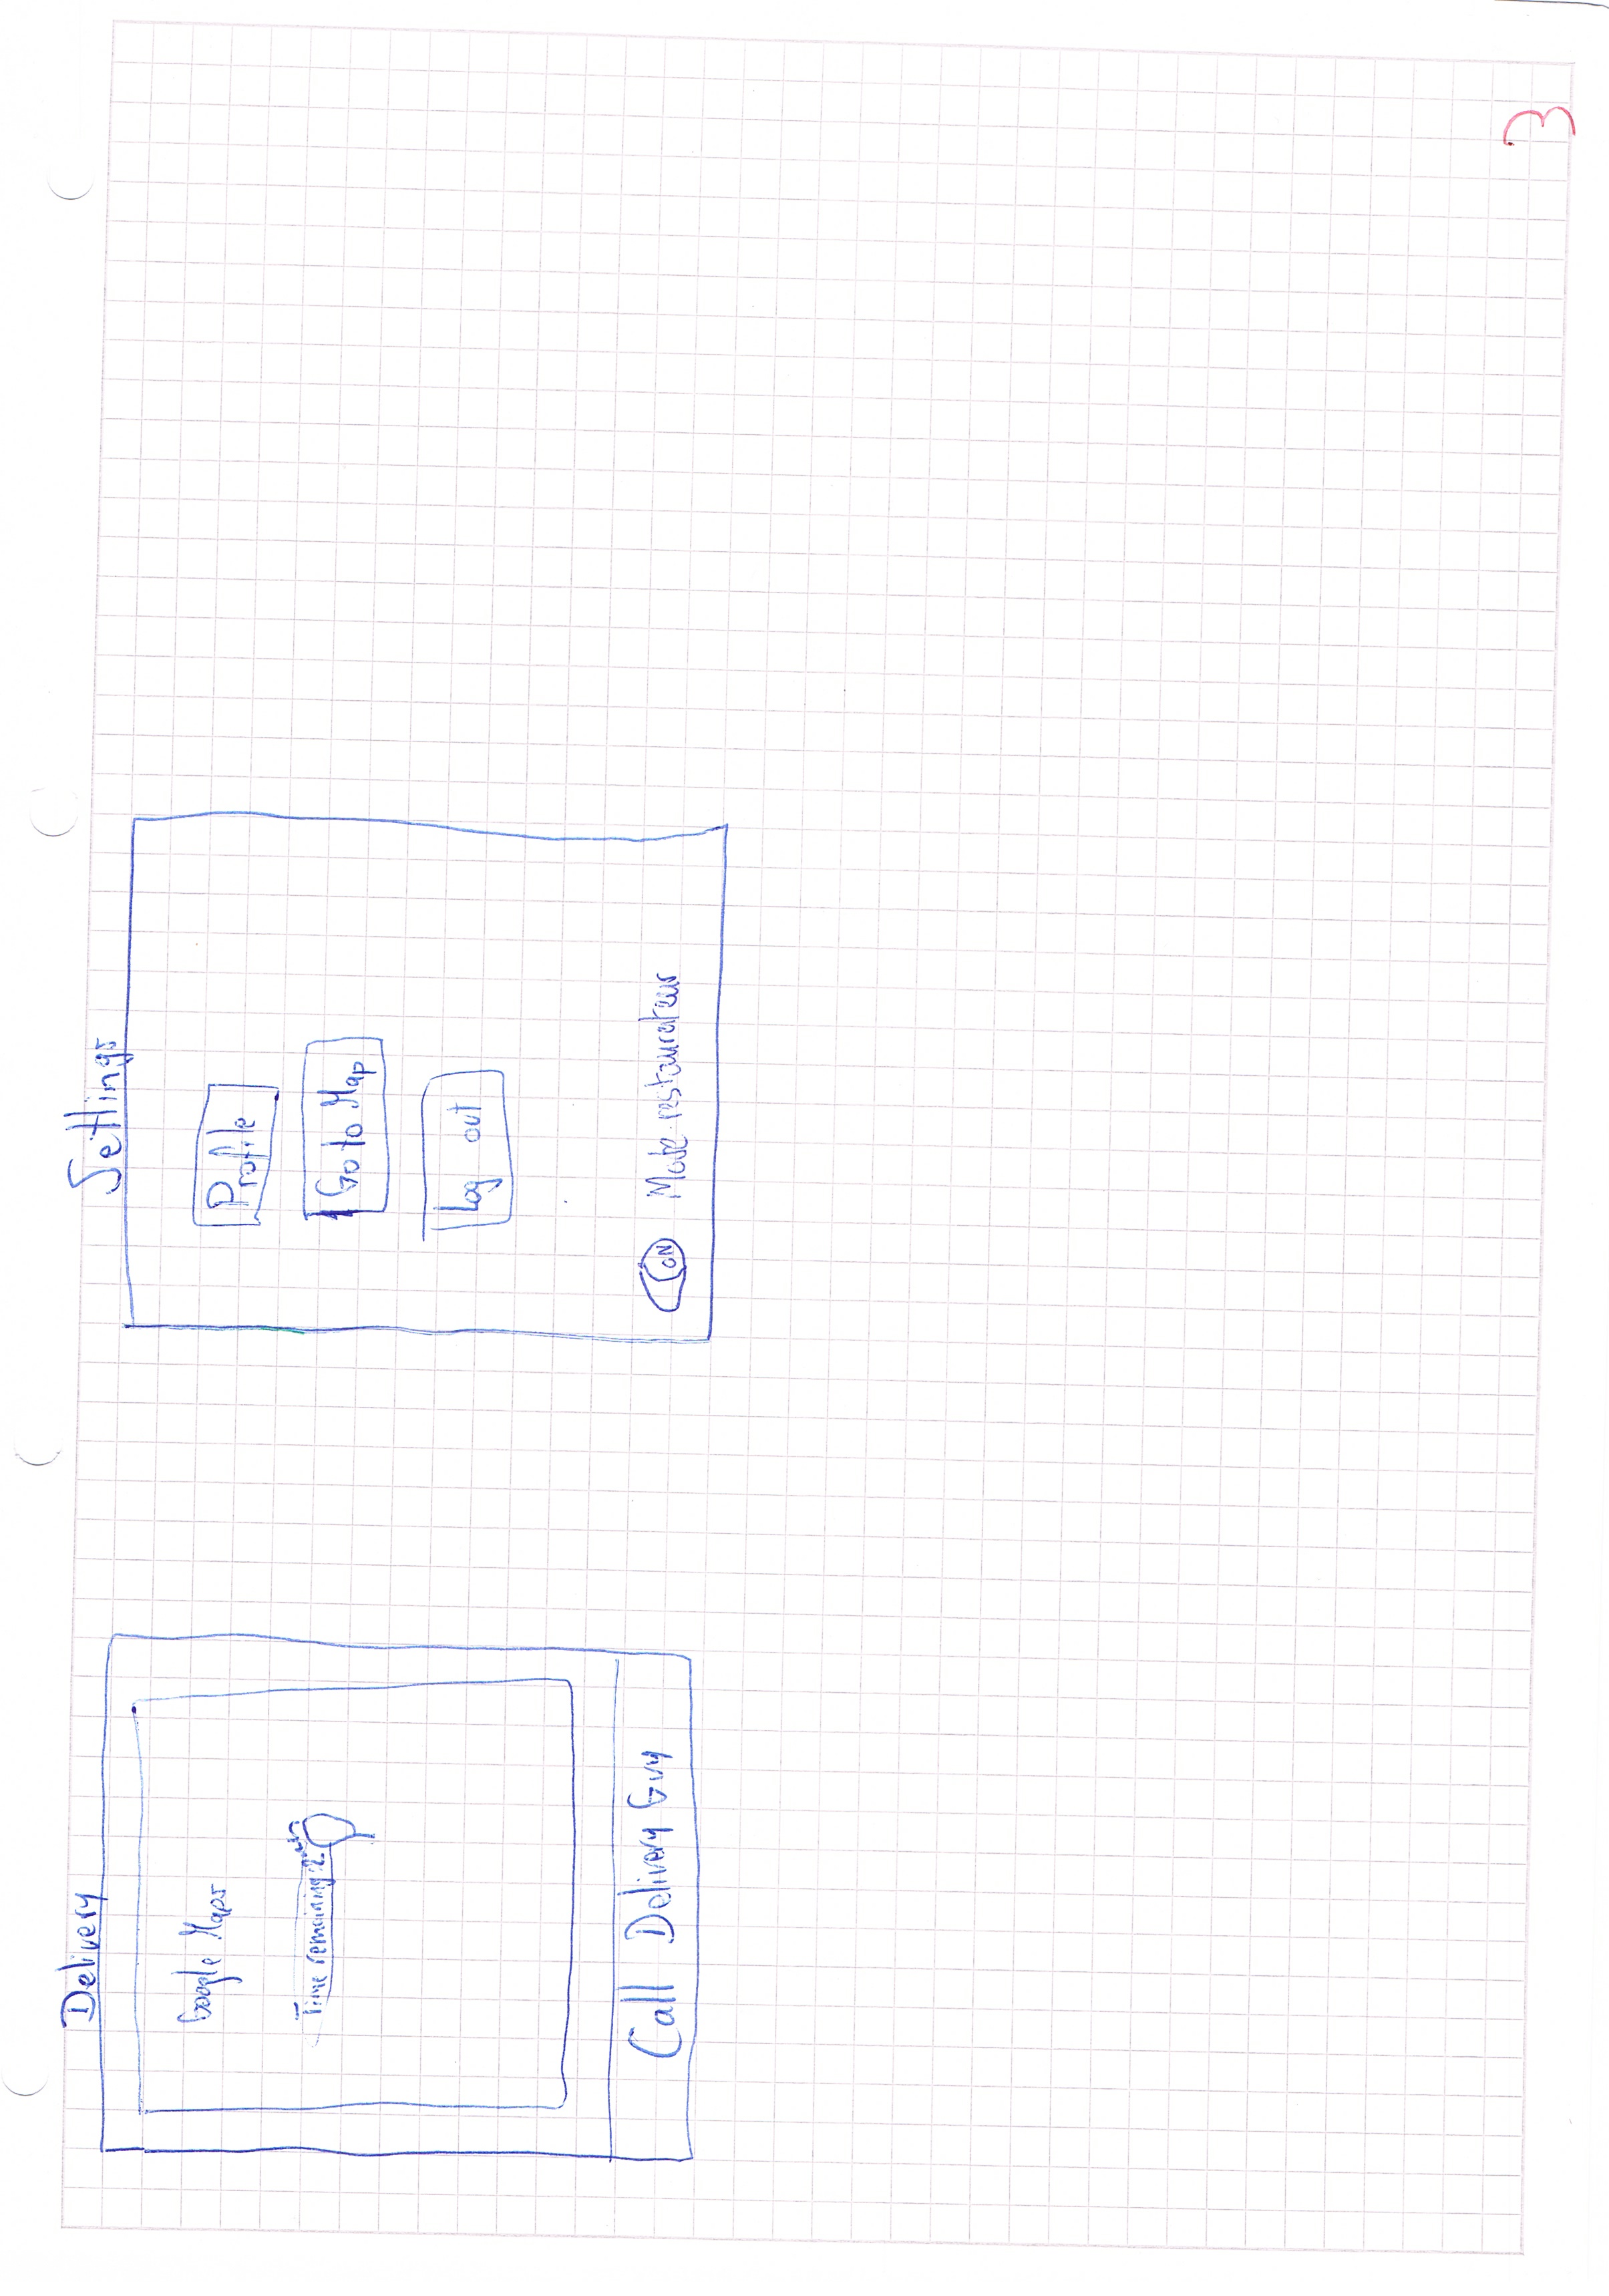 Delivery
Google Maps
Time remaining: 2
Call Delivery Guy
Settings
Profile
Go to Map
Log out
ON Mode restaurateur
3